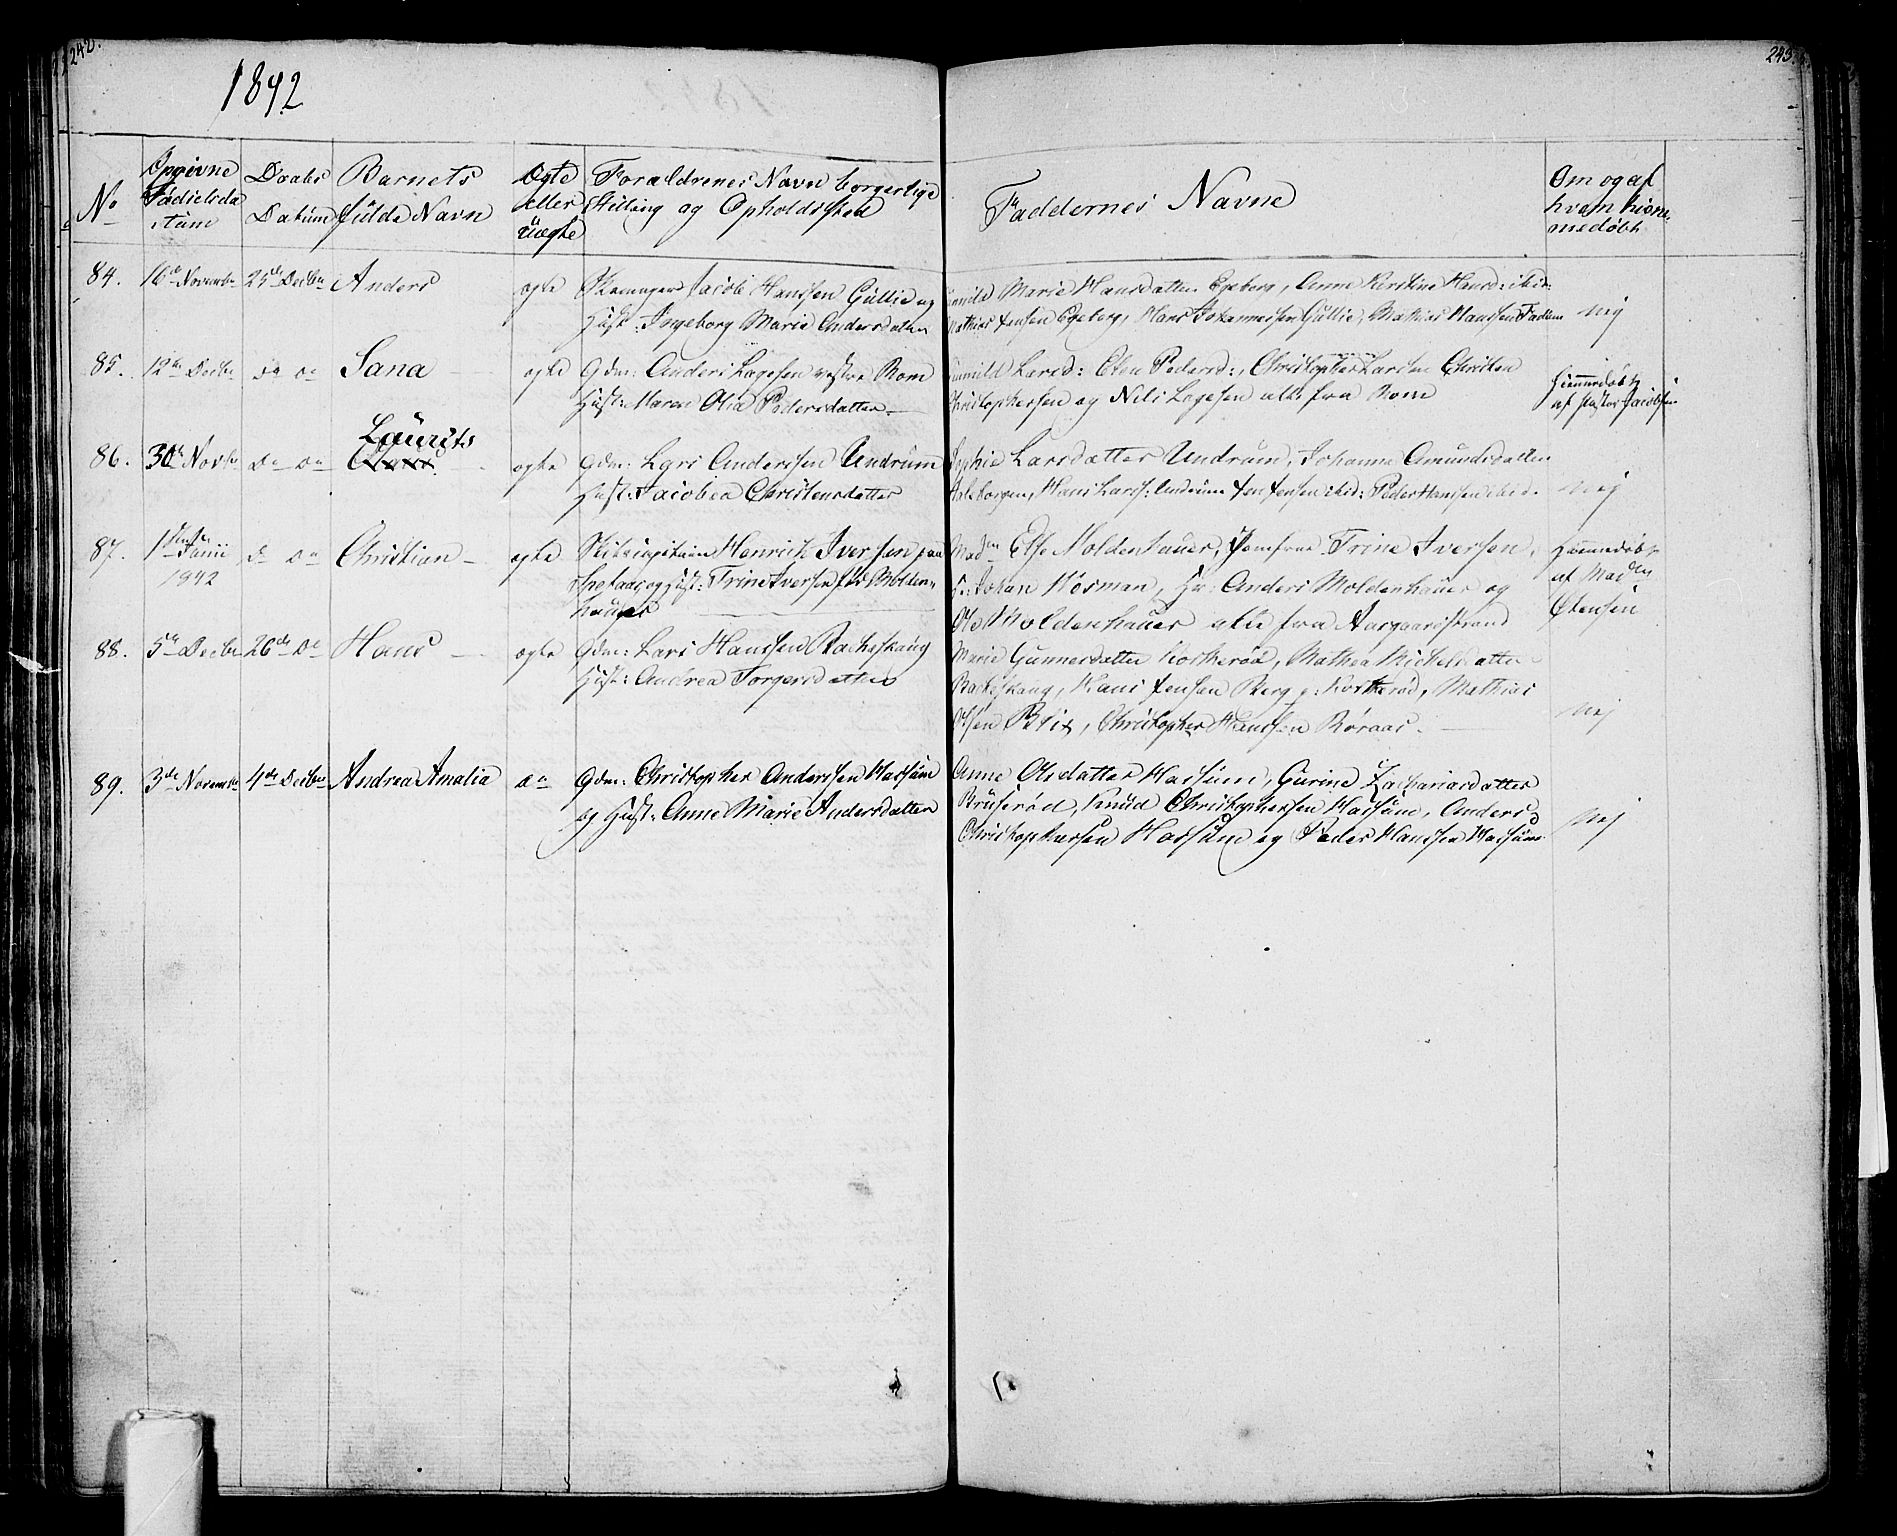 242.
243.
1842
No
Opgivne Fødselsda tum
Daabs Datum
Barnets fulde Navn
Ægte eller Uægte
Forældrenes Navn borgerlige Stilling og Opholdssted
Faddernes Navne
Om og af hvem hiem medøbt
84. 16de Novembr 25de Decbr Anders ægte Skomager Jacob Hanssen Gullie og
Hust: Ingeborg Marie Andersdatter
Gunnild Marie Hansdatter Egeberg, Anne Kirstine Hansd: ibid:
Mathias Jensen Egeberg, Hans Johannessen Gullie, Mathias Hanssen Fadum
Nej
85. 12te Decbr Do Do Sana ægte Gdm: Anders Lagesen vestre Rom
Hust: Maren Olia Pedersdatter
Gunnild Larsd: Elen Pedersd:, Christopher Larsen Christen
Christophersen og Nils Lagesen alle fra Rom
Hiemmedøbt
af Pastor Jacobsen
86. 30te Novbr Do Do Laurits ægte Gdm: Lars Anderssen Undrum
Hust: Jacobea Christensdatter
Sophie Larsdatter Undrum, Johanne Amundsdatter
Hans Larss: Undrum Jens Jensen ibid: Peder Hanssen ibid.
Nej
87. 1ste Junii
1842
Do Do Christian ægte Skibscapitain Henrich Iversen paa
og Hust: Trine Iversen fød Molden-
hauer
Madm Else Moldenhauer, Jomfrue Trine Iversen,
Hr: Johan Høsman, Hr: Anders Moldenhauer og
Ole Moldenhauer alle fra Aasgaardstrand
Hiemmedøbt
af Madm
Østensen
88. 5te Decbr 26de Do Hans ægte Gdm: Lars Hanssen Backeskoug
Hust: Andrea Torgersdatter
Marie Gunnersdatter Kortherød, Mathea Michelsdatter
Backeskoug, Hans Jensen Berg p: Kortherød, Mathias
Olsen Blix, Christopher Hanssen Røraas.
Nej
89. 3de Novembr 4de Decbr Andrea Amalia Do Gdm: Christopher Anderssen Hassum
og Hust: Anne Marie Andersdatter
Anne Olsdatter Hassum, Gurine Zachariasdatter
Bruserød, Knud Christophersen Hassum, Anders
Christophersen Hassum og Peder Hanssen Hassum
Nej